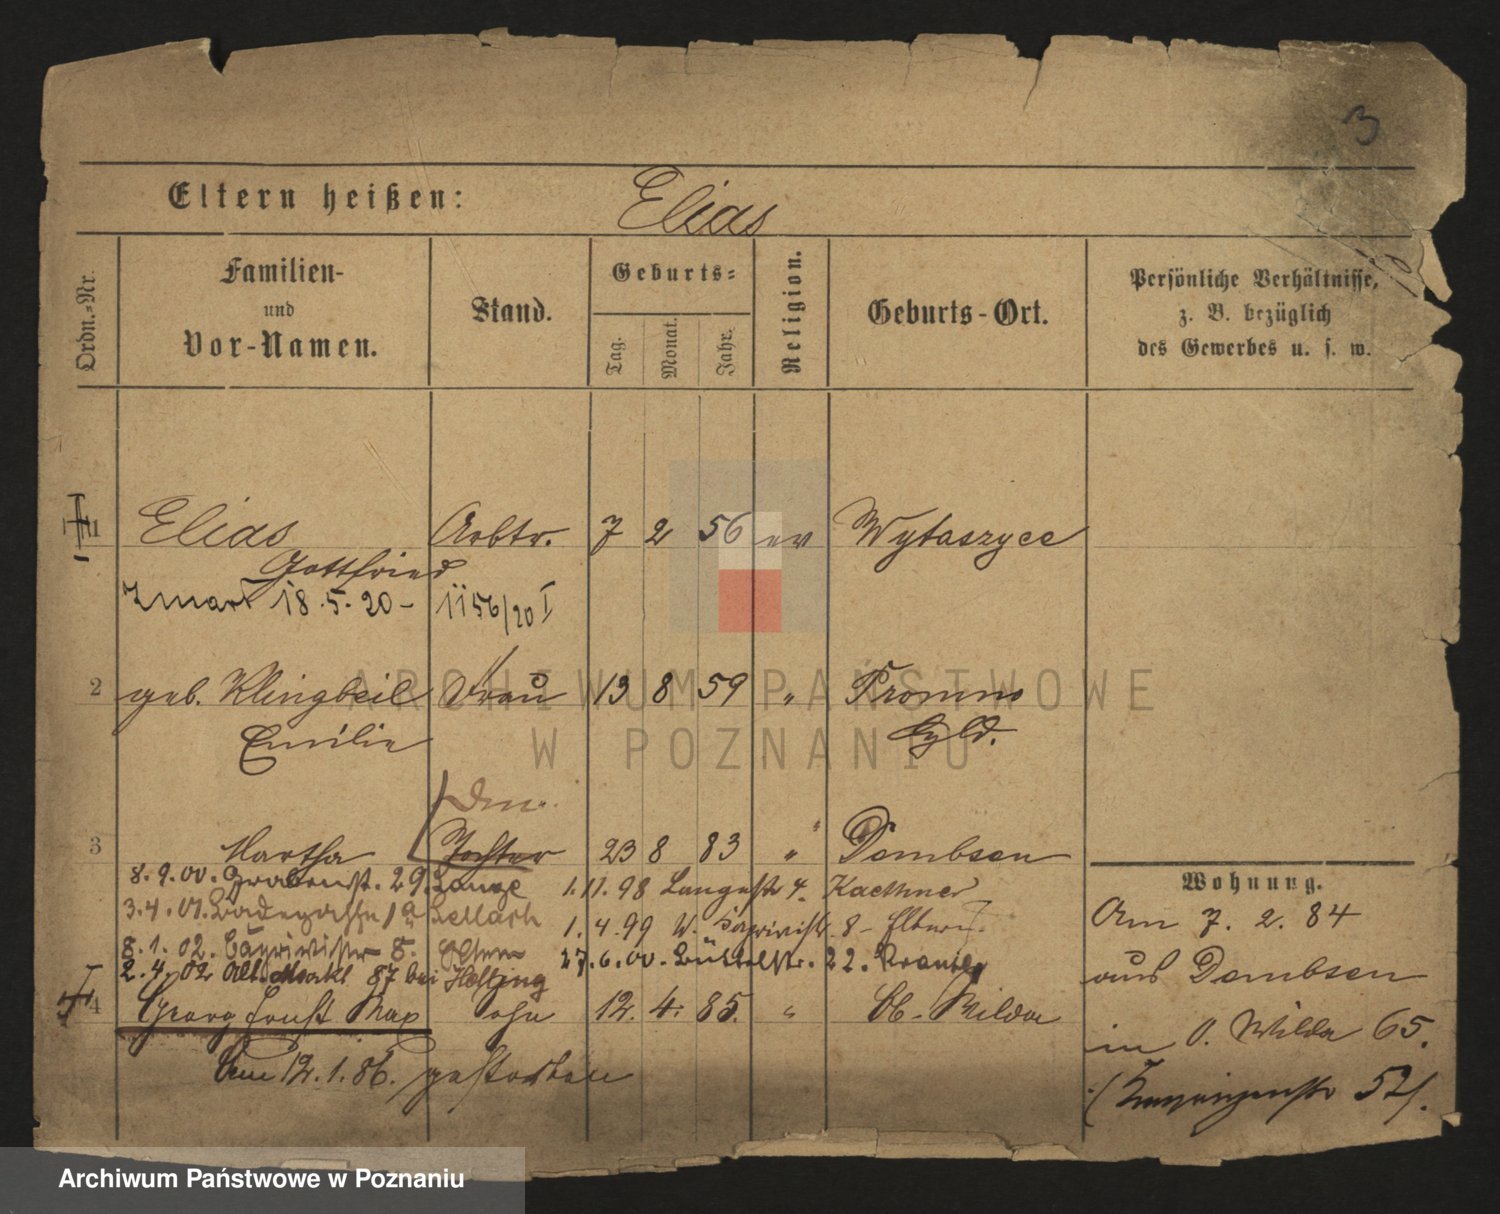 3
Eltern heißen: Elias
Ordn.-Nr.
Familien-
und
Vor-Namen.
Stand.
Geburts-
Tag.
Monat.
Jahr.
Religion.
Geburts-Ort.
Persönliche Verhältnisse,
z. B. bezüglich
des Gewerbes u. s. w.
1 Elias Arbtr. 7 2 56 ev Wytaszyce
Gottfried
Zmarł 18.5.20 - 1156/20 I
2 geb. Klingbeil Frau 13 8 59 " Promno
Emilie
3 Martha Tochter 23 8 83 " Dembsen
8.9.00. Grabenst. 29. Lange 1.11.98 Langestr 4. Kaethner
3.4.01. 1.4.99 W. 8-
8.1.02. 8. Eltern 27.6.00. 22.
2.4.02 Alt. Markt 87 bei
4 Georg Ernst Max Sohn 12. 4. 85. " Ob. Wilda
Am 12.1.86. gestorben
Wohnung.
Am 7. 2. 84
aus Dembsen
in O. Wilda 65.
52/.
ARCHIWUM PAŃSTWOWE
W POZNANIU
Archiwum Państwowe w Poznaniu